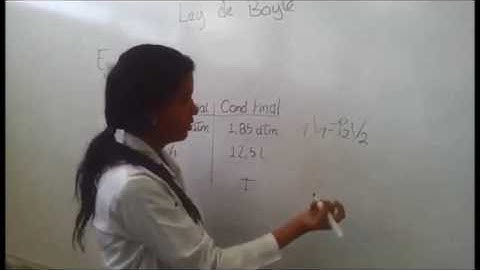 Ley de Boyle
E
al | Cond Final
atm | 1,85 atm
12,5 L
T
V₁=P₂V₂